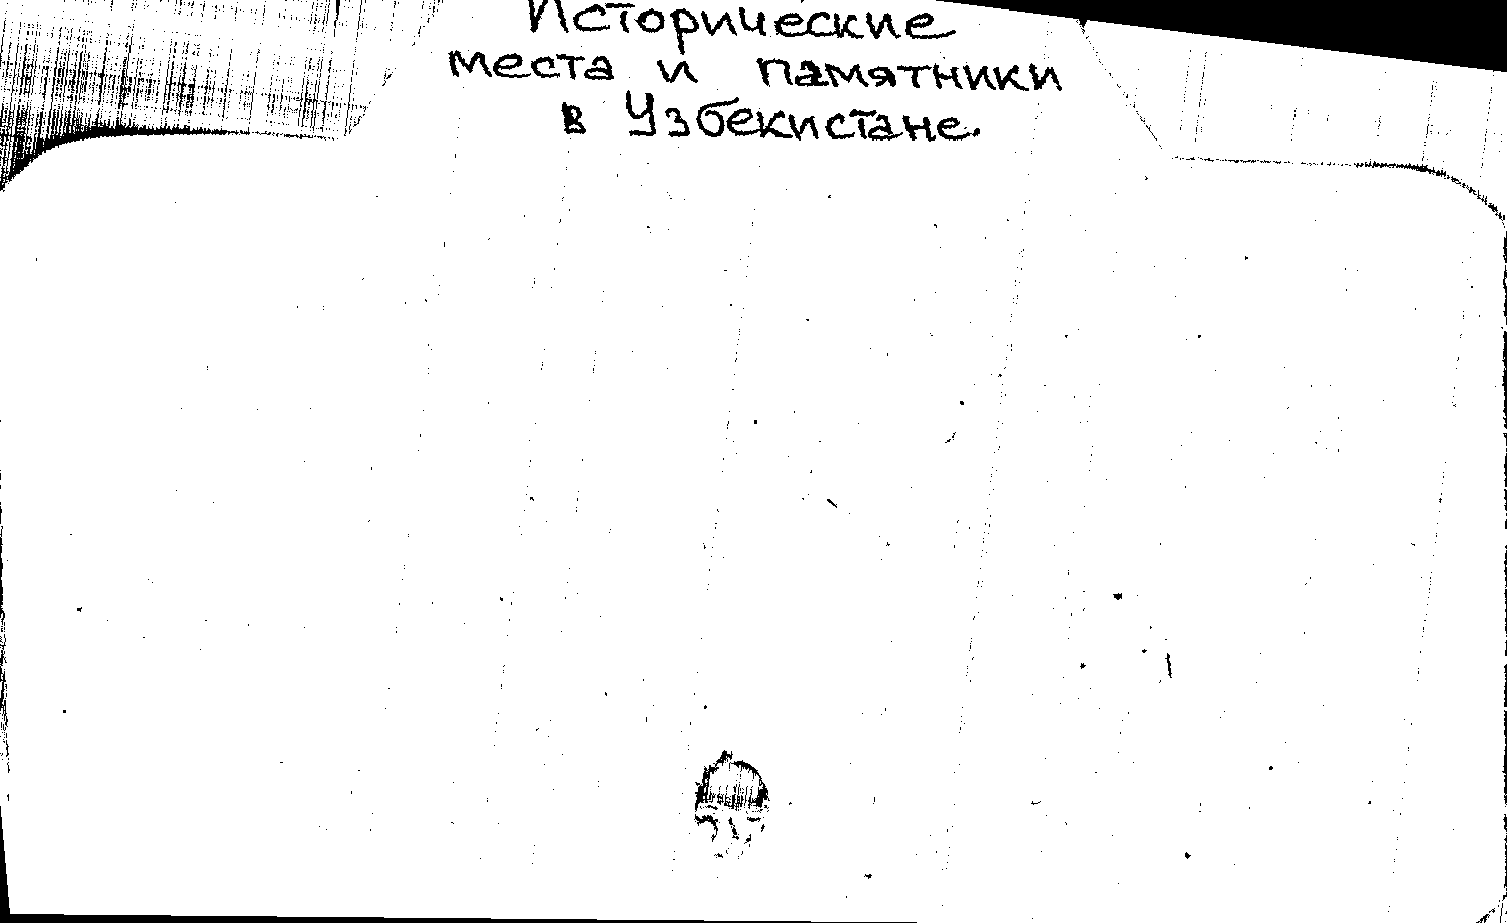 Исторические
места и памятники
в Узбекистане.